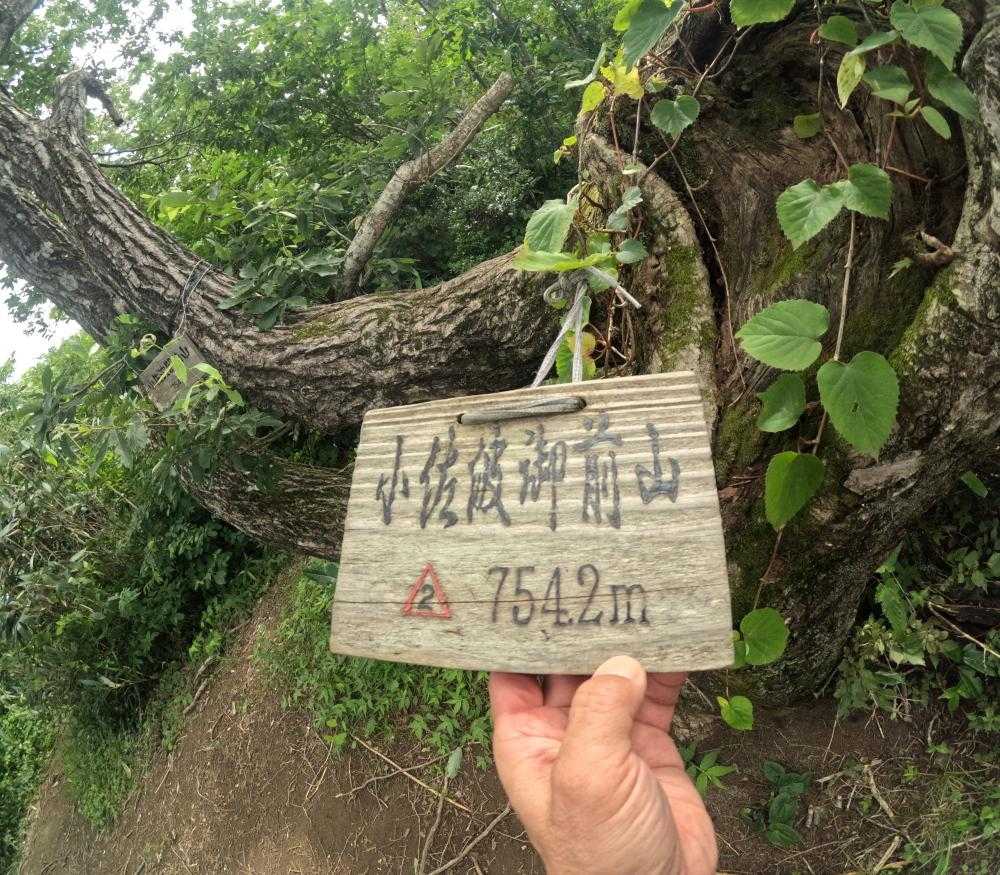 小佐波御前山
2 754.2m